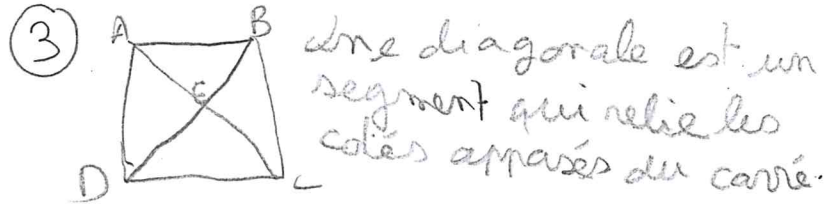 3
A B
Une diagonale est un
E
segment qui relie les
cotés apposés du carré.
D C